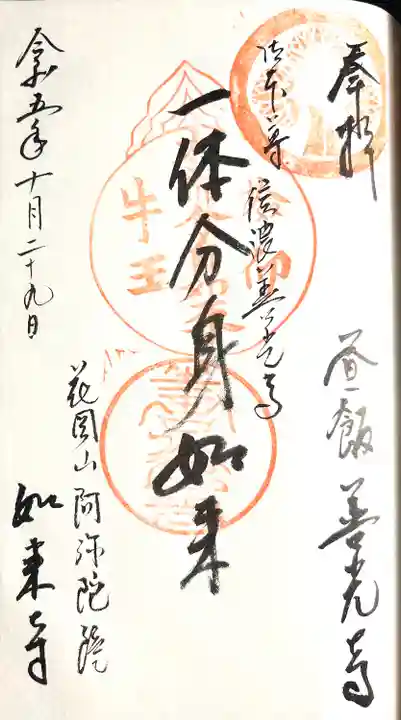 奉拝
昼飯善光寺
御本尊
信濃善光寺
一体分身如来
牛王
花岡山阿弥陀院
如来寺
令和五年十月二十九日